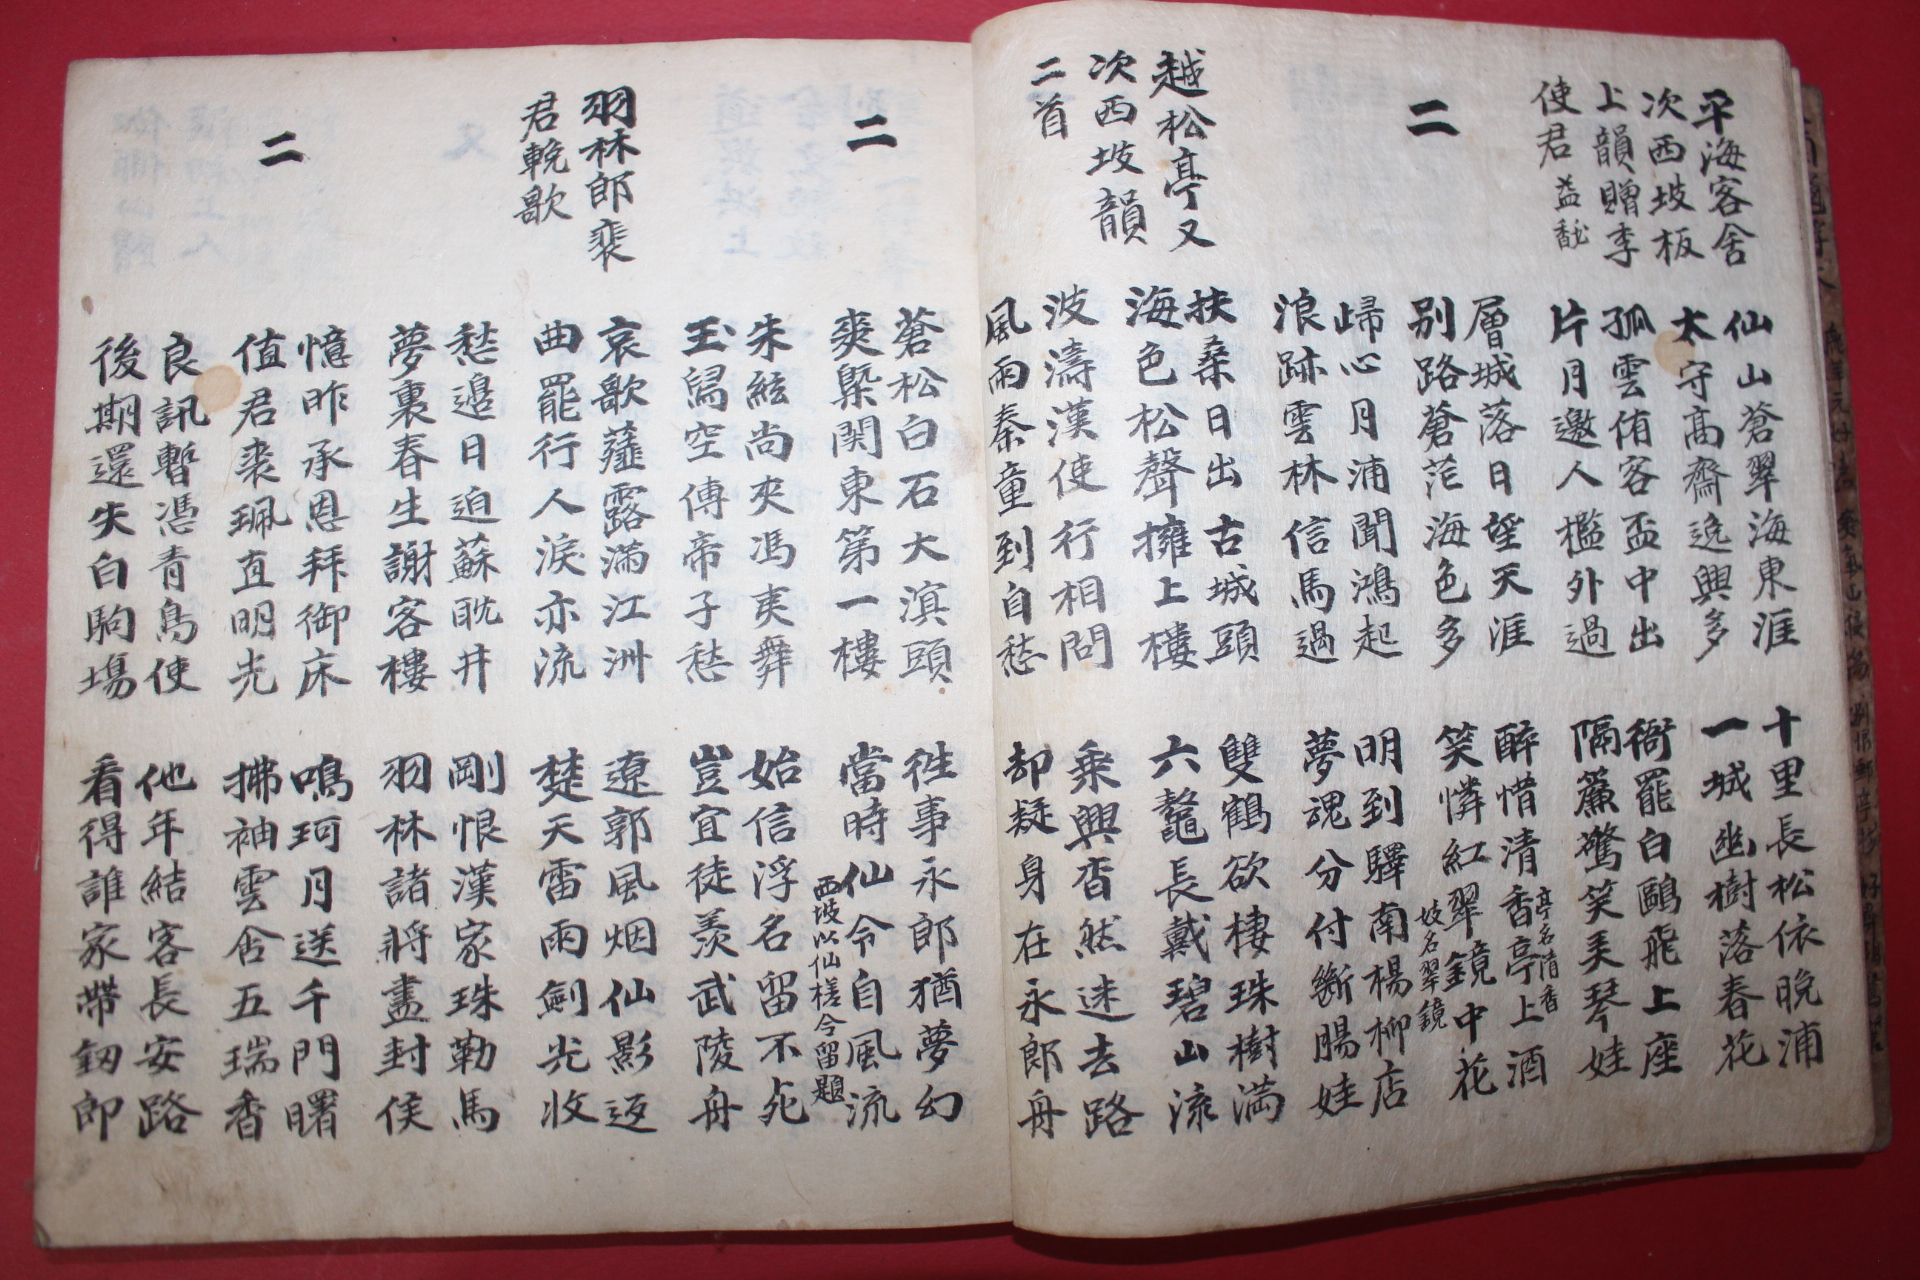 平海客舍
次西坡板
上韻贈李
使君益馝
仙山蒼翠海東涯
太守高齋逸興多
十里長松依晚浦
一城幽樹落春花
孤雲侑客盃中出
片月邀人檻外過
衙罷白鷗飛上座
隔簾驚笑美琴娃
二
層城落日望天涯
別路蒼茫海色多
醉惜清香亭上酒
亭名清香
笑憐紅翠鏡中花
妓名翠鏡
歸心月浦聞鴻起
浪跡雲林信馬過
明到驛南楊柳店
夢魂分付斷腸娃
越松亭又
次西坡韻
二首
扶桑日出古城頭
海色松聲擁上樓
雙鶴欲棲珠樹満
六鼇長戴碧山流
波濤漢使行相問
風雨秦童到自愁
乘興杳然迷去路
却疑身在永郎舟
二
蒼松白石大溟頭
爽槩関東第一樓
徃事永郎猶夢幻
當時仙令自風流
西坡以仙槎令留題
朱絃尚夾馮夷舞
玉舄空傳帝子愁
始信浮名留不死
豈宜徒羨武陵舟
羽林郎裴
君輓歌
哀歌薤露満江洲
曲罷行人淚亦流
遼郭風烟仙影返
楚天雷雨劍光收
愁邉日迫蘇耽井
夢裏春生謝客樓
剛恨漢家珠勒馬
羽林諸將盡封侯
二
憶昨承恩拜御床
值君裘珮直明光
鳴珂月送千門曙
拂袖雲含五瑞香
良訊暫憑青鳥使
後期還失白駒場
他年結客長安路
看得誰家帶釼郎